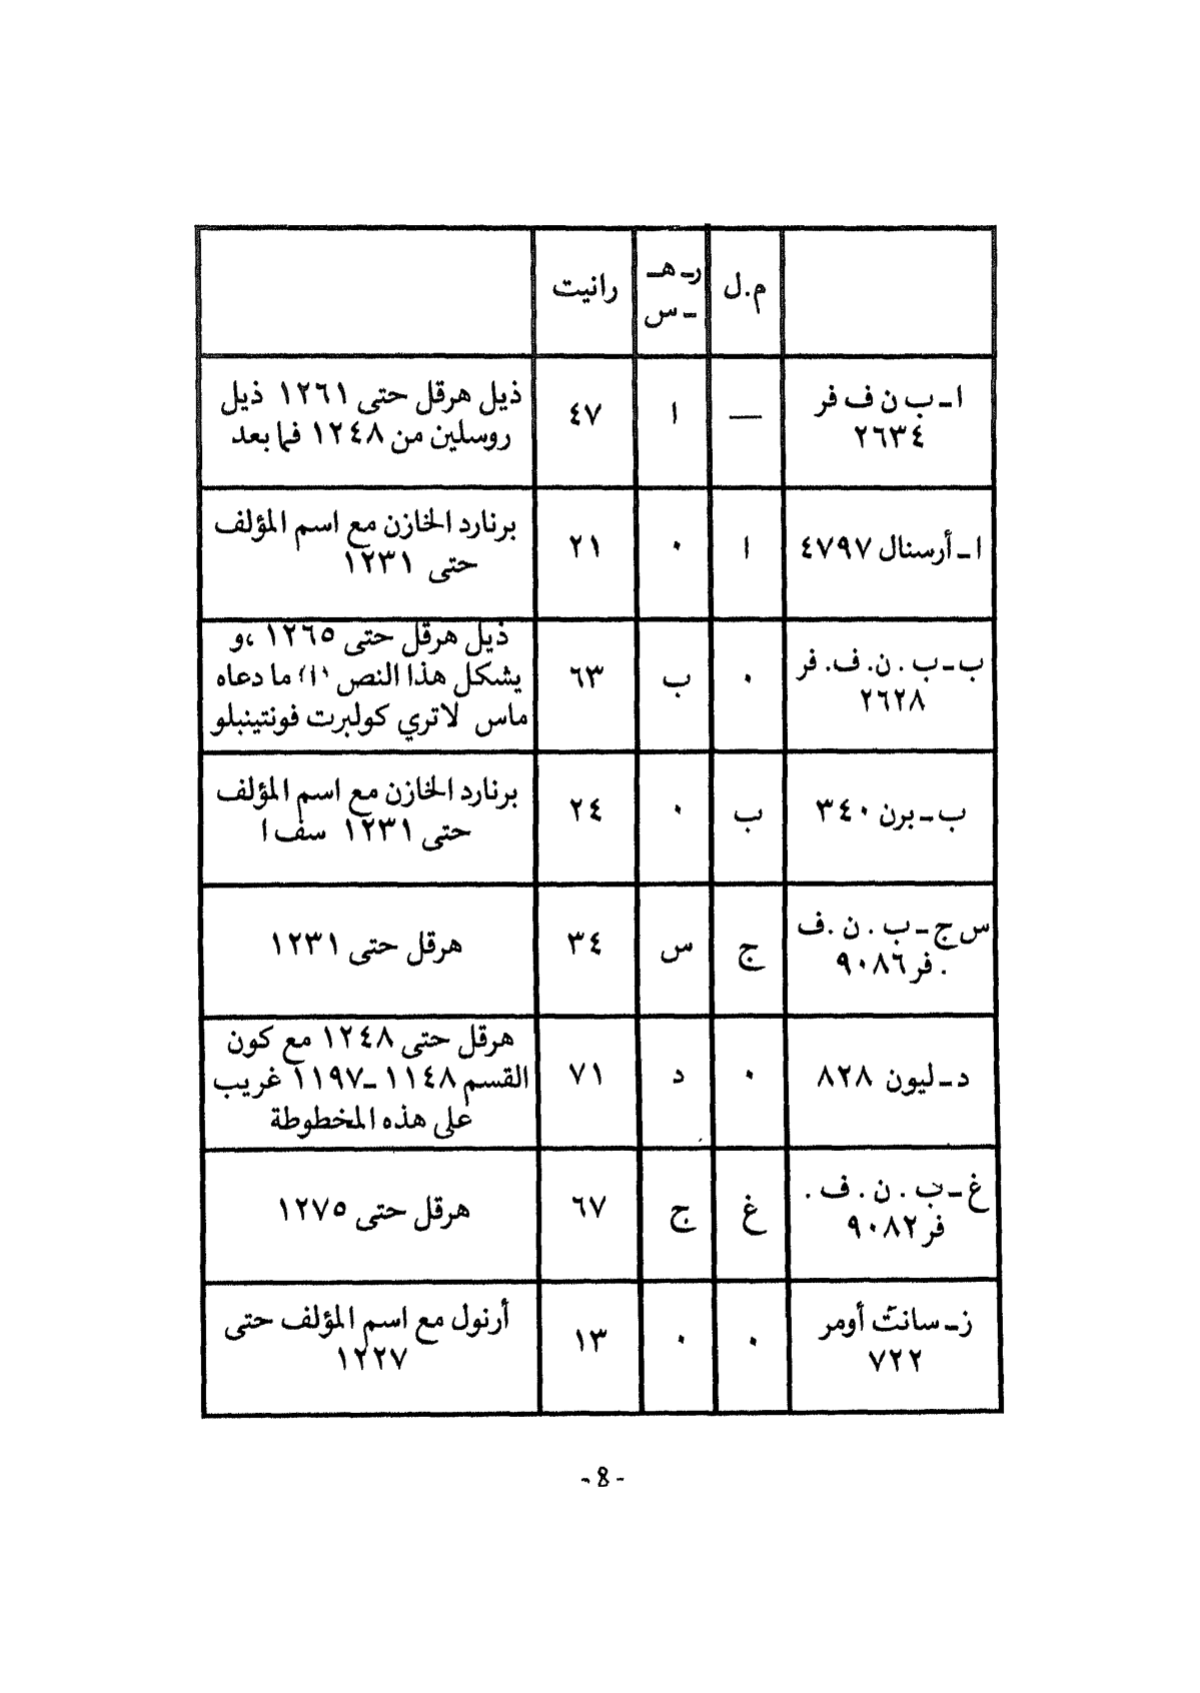 م.ل
ر ـ هـ
ـ س
رانيت
ا ـ ب ن ف فر
٢٦٣٤
—
ا
٤٧
ذيل هرقل حتى ١٢٦١ ذيل
روسلين من ١٢٤٨ فما بعد
ا ـ أرسنال ٤٧٩٧
ا
٠
٢١
برنارد الخازن مع اسم المؤلف
حتى ١٢٣١
ب ـ ب . ن. ف. فر
٢٦٢٨
٠
ب
٦٣
ذيل هرقل حتى ١٢٦٥ ،و
يشكل هذا النص (ا) ما دعاه
ماس لاتري كولبرت فونتينبلو
ب ـ برن ٣٤٠
ب
٠
٢٤
برنارد الخازن مع اسم المؤلف
حتى ١٢٣١ سف ا
س ج ـ ب . ن .ف
. فر ٩٠٨٦
ج
س
٣٤
هرقل حتى ١٢٣١
د ـ ليون ٨٢٨
٠
د
٧١
هرقل حتى ١٢٤٨ مع كون
القسم ١١٤٨ ـ ١١٩٧ غريب
على هذه المخطوطة
غ ـ ب . ن . ف .
فر ٩٠٨٢
غ
ج
٦٧
هرقل حتى ١٢٧٥
ز ـ سانت أومر
٧٢٢
٠
٠
١٣
أرنول مع اسم المؤلف حتى
١٢٢٧
- 8 -